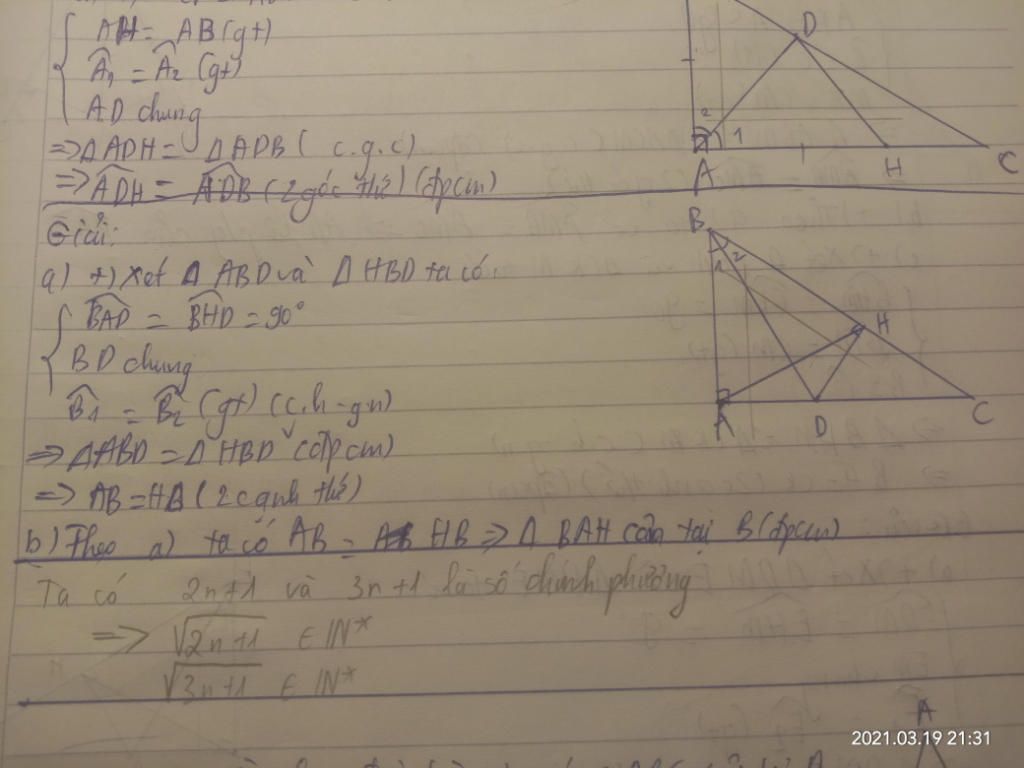 AH = AB (gt)
Â1 = Â2 (gt)
AD chung
=> Δ ADH = Δ ADB ( c.g.c)
=> ADH = ADB (2 góc tứ) (đpcm)
D
2
1
A
H
C
Giải:
a) +) Xét Δ ABD và Δ HBD ta có
BAD = BHD = 90°
BD chung
B̂1 = B̂2 (gt) (c.h - gn)
=> Δ ABD = Δ HBD (đpcm)
=> AB = HB (2 cạnh tứ)
B
1 2
H
A
D
C
b) Theo a) ta có AB = HB => Δ BAH cân tại B (đpcm)
Ta có 2n+1 và 3n+1 là số chính phương
=> √2n+1 ∈ IN*
√3n+1 ∈ IN*
A
2021.03.19 21:31